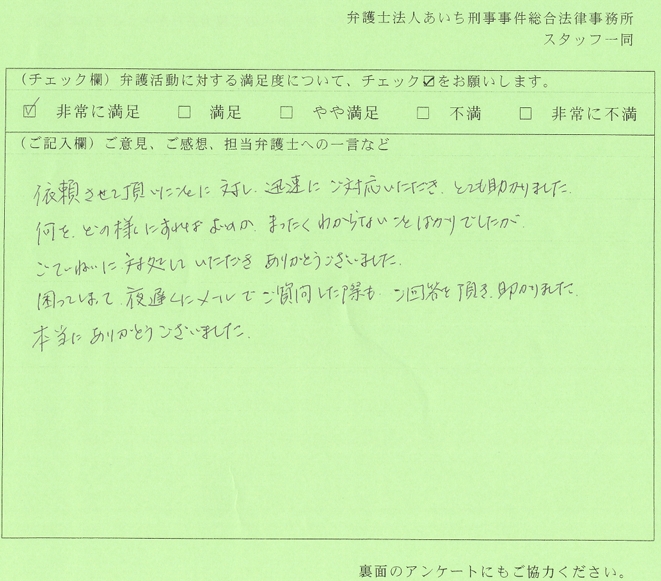 弁護士法人あいち刑事事件総合法律事務所
スタッフ一同
(チェック欄)弁護活動に対する満足度について、チェック☑をお願いします。
☑ 非常に満足 □ 満足 □ やや満足 □ 不満 □ 非常に不満
(ご記入欄)ご意見、ご感想、担当弁護士への一言など
依頼させて頂いたことに対し、迅速にご対応いただき、とても助かりました。
何を、どの様にすればよいのか、まったくわからないことばかりでしたが、
ていねいに対処していただきありがとうございました。
困ってしまって、夜遅くにメールでご質問した際も、ご回答を頂き、助かりました。
本当にありがとうございました。
裏面のアンケートにもご協力ください。